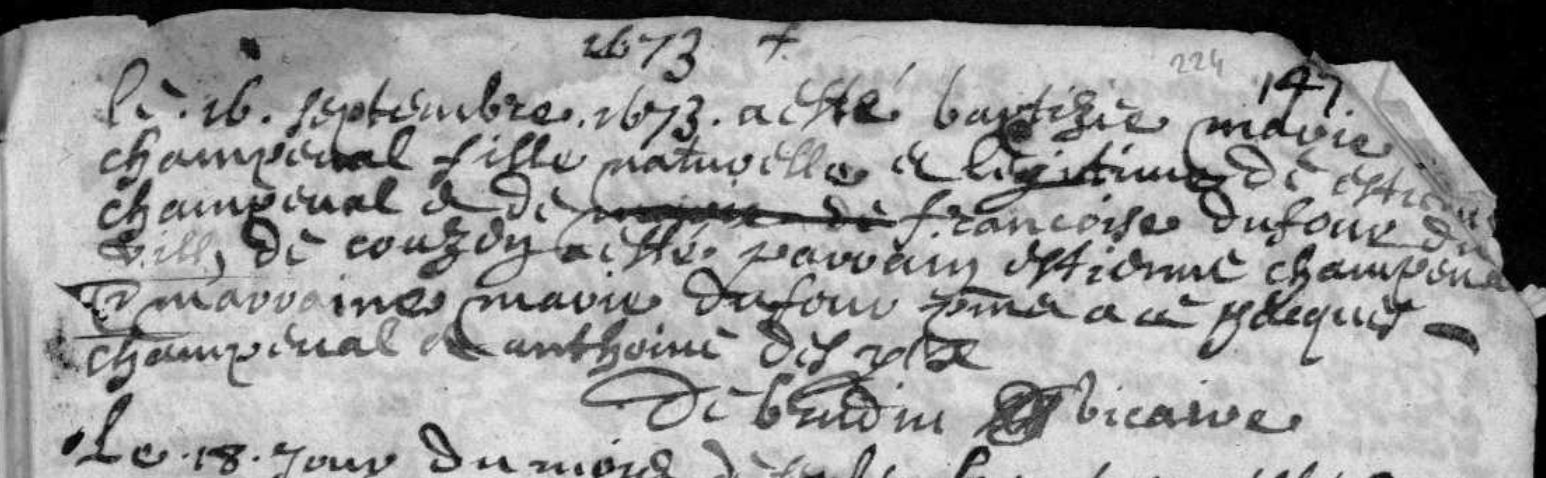 1673 +
224
147
le .16. septembre .1673. a esté baptizée marie
champenal fille naturelle & legitime de estienne
champenal & de françoise dufour du
vill, de couzoy a esté parrain estienne champena
& marraine marie dufour pnts a ce jacques
champenal & anthoine
De vicaire
Le .18. Jour du mois de